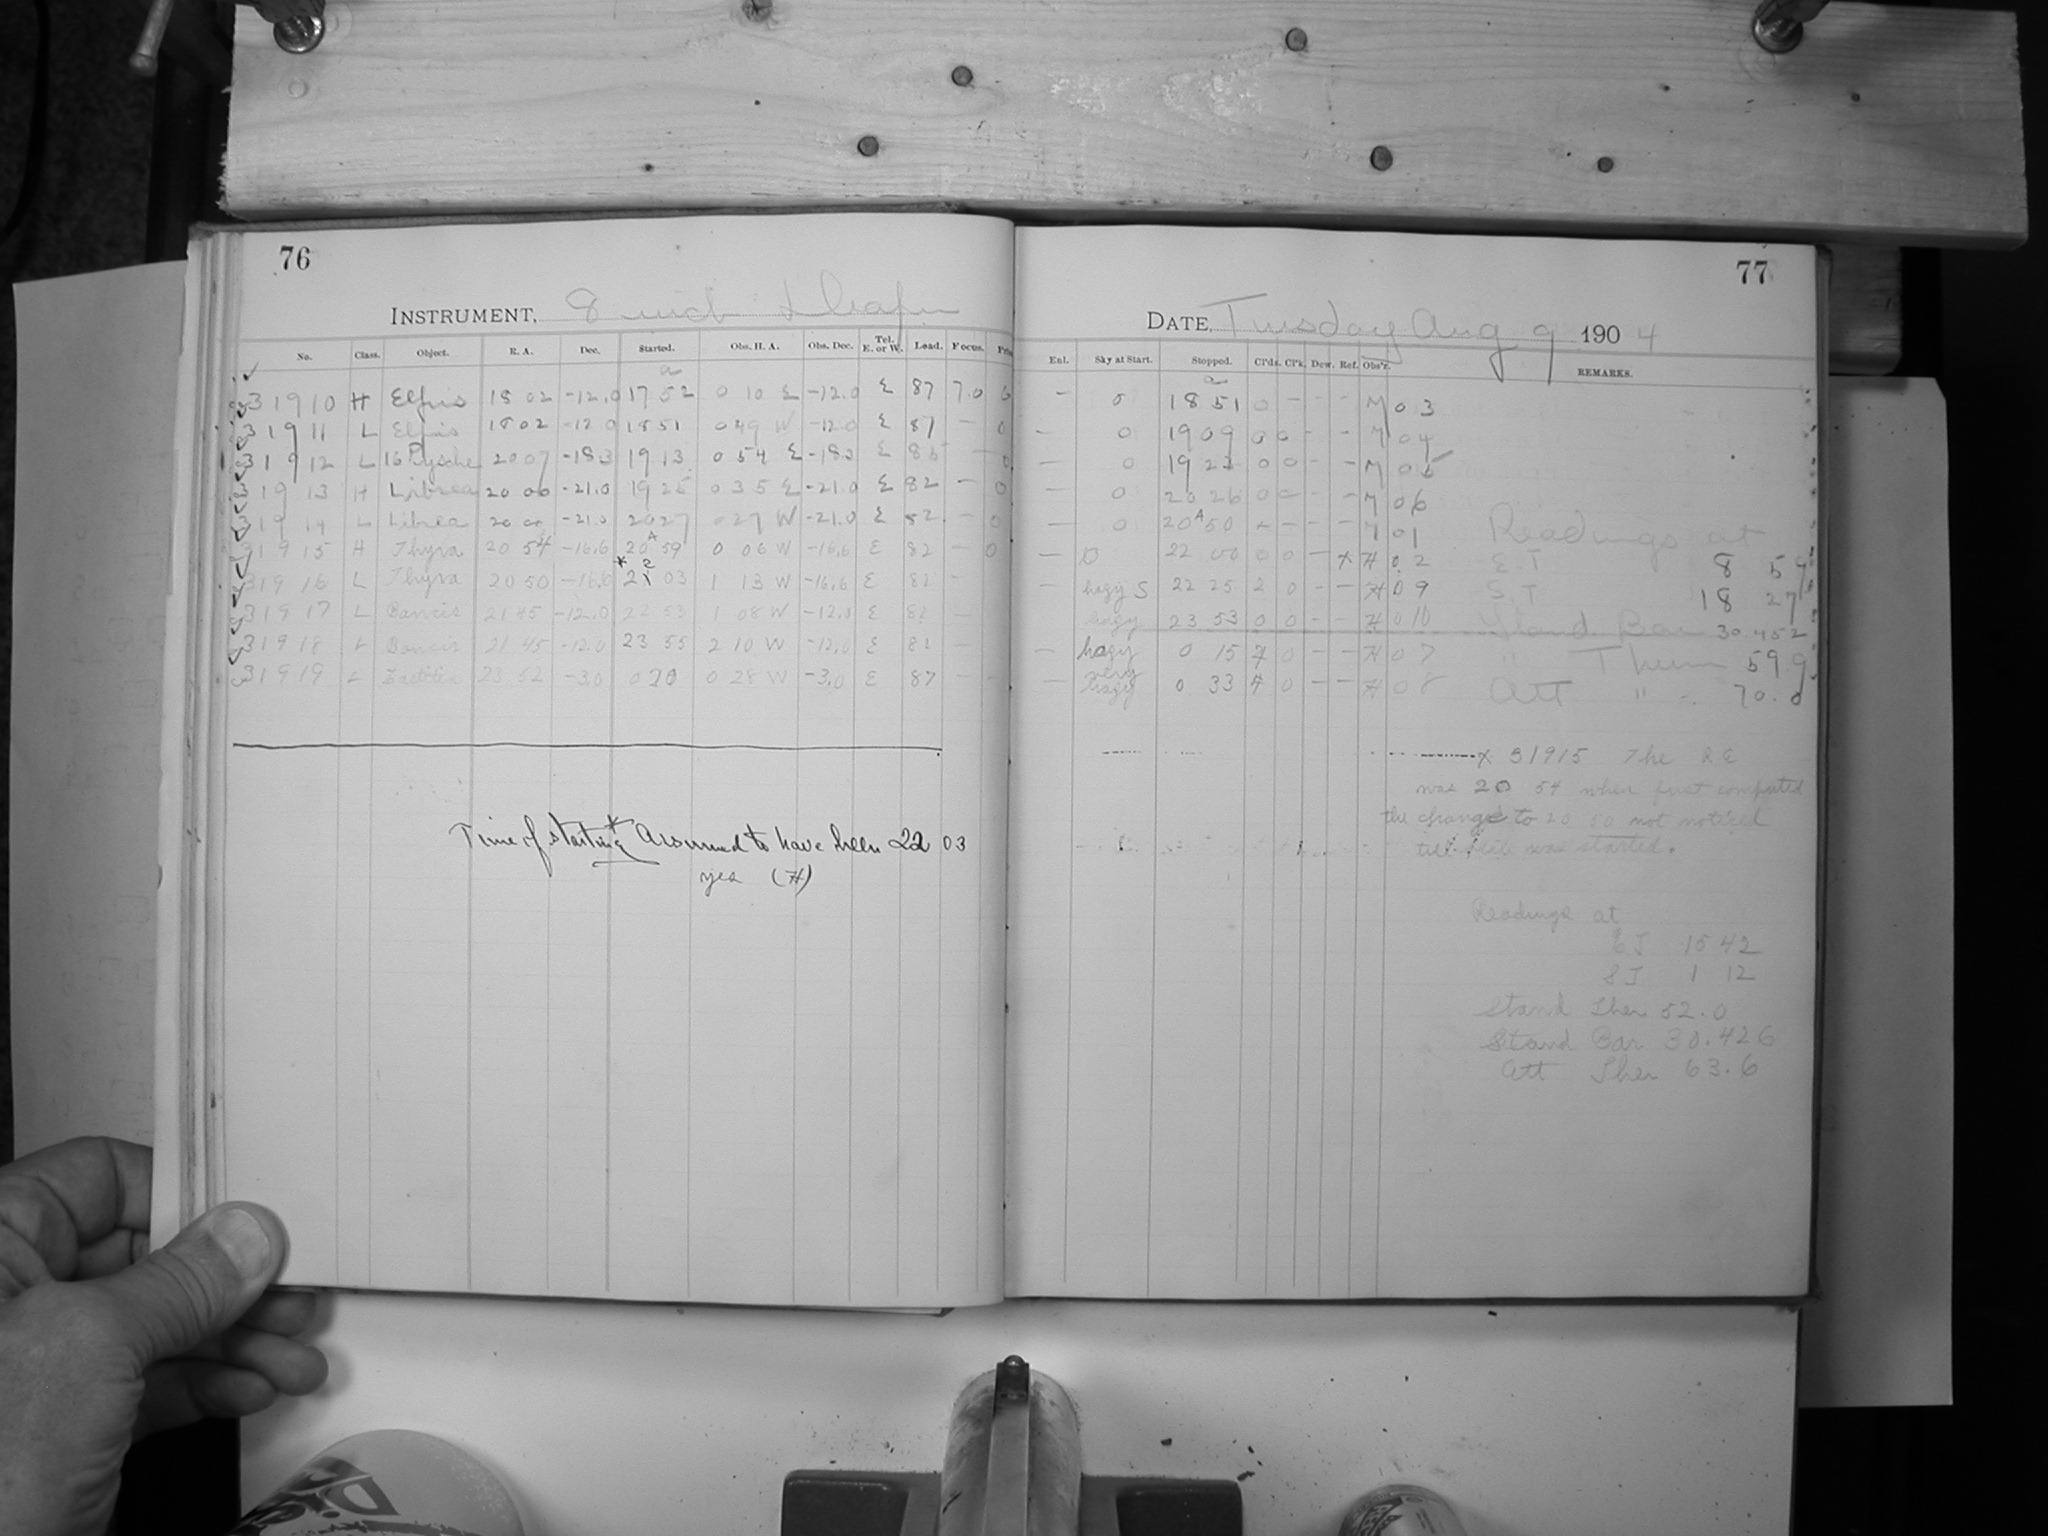 76
INSTRUMENT, 8 inch Draper
No. Class. Object. R. A. Dec. Started. Obs. H. A. Obs. Dec. Tel. E. or W. Load. Focus.
31910 H Elpis 18 02 -12.0 17 52 0 10 E -12.0 E 87 7.0 0
31911 L Elpis 18 02 -12 0 18 51 0 49 W -12.0 E 87 - 0
31912 L 16 Pysche 20 07 -18.3 19 13 0 54 E -18.3 E 8 - 0
31913 H Librea 20 00 -21.0 19 25 0 35 E -21.0 E 82 - 0
31914 L Librea 20 00 -21.0 20 27 0 27 W -21.0 E 82 - 0
31915 H Thyra 20 54 -16.6 20 59 0 06 W -16.6 E 82 - 0
31916 L Thyra 20 50 -16.6 * 22 03 1 13 W -16.6 E 82 -
31917 L Baucis 21 45 -12.0 22 53 1 08 W -12.0 E 82 -
31918 L Baucis 21 45 -12.0 23 55 2 10 W -12.0 E 82 -
31919 L 23 52 -3.0 0 20 0 28 W -3.0 E 87 -
Time of starting * Assumed to have been 22 03
yes (H)
77
DATE, Tuesday Aug 9 1904
Enl. Sky at Start. Stopped. Cl'ds. Cl'k. Dew. Ref. Obs'r. REMARKS.
- 0 18 51 0 - - - M 03
- 0 19 09 0 0 - - M 04
- 0 19 23 0 0 - - M 05
- 0 20 26 0 0 - - M 06
- 0 20 50 - - - - M 01
- 0 22 00 0 0 - x H 02
- hazy S 22 25 2 0 - - H 09
hazy 23 53 0 0 - - H 010
- hazy 0 15 7 0 - - H 07
- very hazy 0 33 7 0 - - H 08
Readings at
E.T 8 59
S.T 18 27
Stand Bar 30.452
" Therm 59.9
Att " 70.0
x 31915 The R A
was 20 54 when first computed
the change to 20 50 not noticed
till was started.
Readings at
E T 15 42
S T 1 12
Stand Ther 52.0
Stand Bar 30.426
Att Ther 63.6